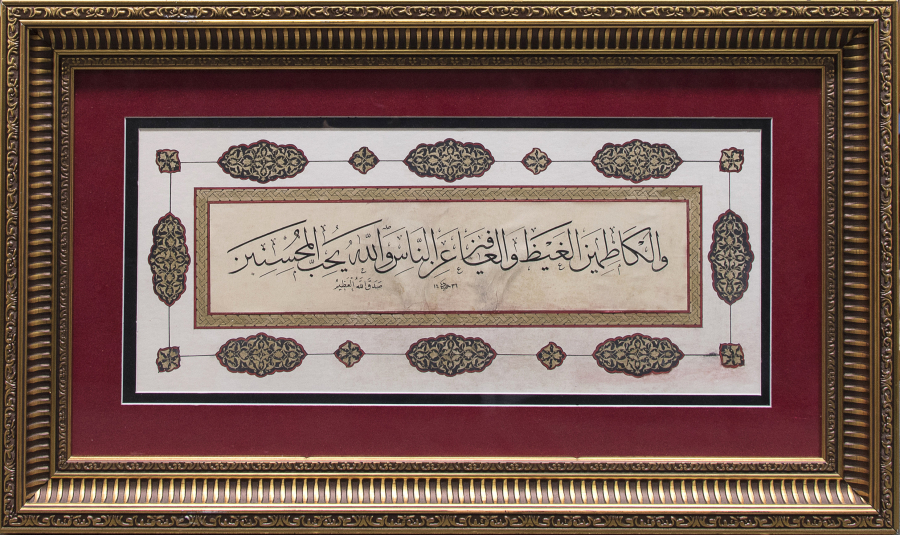 والكاظمين الغيظ والعافين عن الناس والله يحب المحسنين
صدق الله العظيم